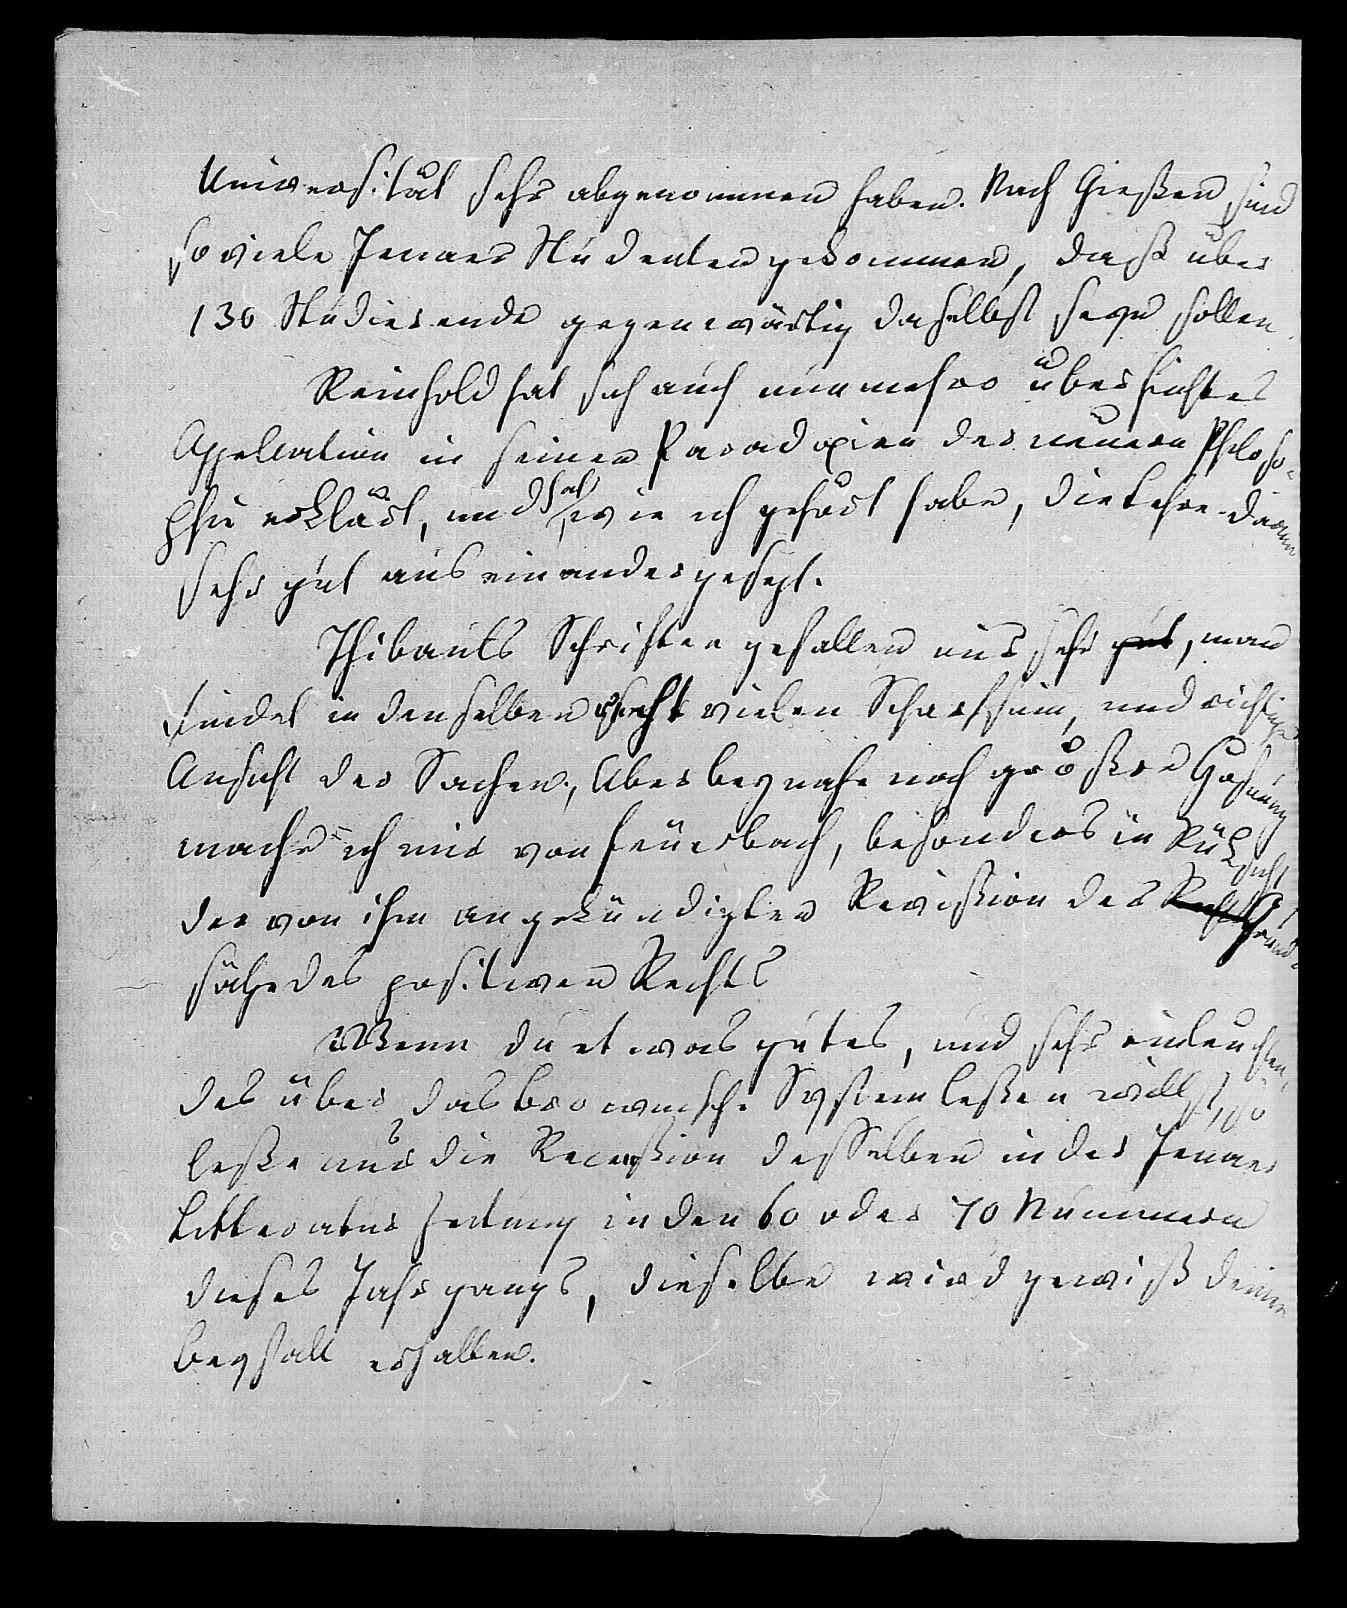 Universität sehr abgenommen haben. Nach Gießen sind
so viele Jenaer Studenten gekommen, daß über
130 Studierende gegenwärtig daselbst seyn sollen.
Reinhold hat sich auch nunmehro über Fichtes
Appellation in seinen Paradoxien der neuern Philoso-
phie erklärt, und hat, wie ich gehört habe, die Lehre darin
sehr gut auseinandergesezt.
Thibauts Schriften gefallen uns sehr gut, man
findet in denselben recht vielen Scharfsinn, und richtige
Ansicht der Sachen, Aber beynahe noch größere Hofnung
mache ich mir von Feuerbach, besonders in Rüksicht
der von ihm angekündigten Revißion der Grund-
säze des positiven Rechts
Wenn du etwas gutes, und sehr einleuchten-
des über das brownsche System leßen willst, so
leße nur die Recenßion desselben in der Jenaer
Litteratur Zeitung in den 60 oder 70 Nummern
dieses Jahrgangs, dieselbe wird gewiß deinen
beyfall erhalten.